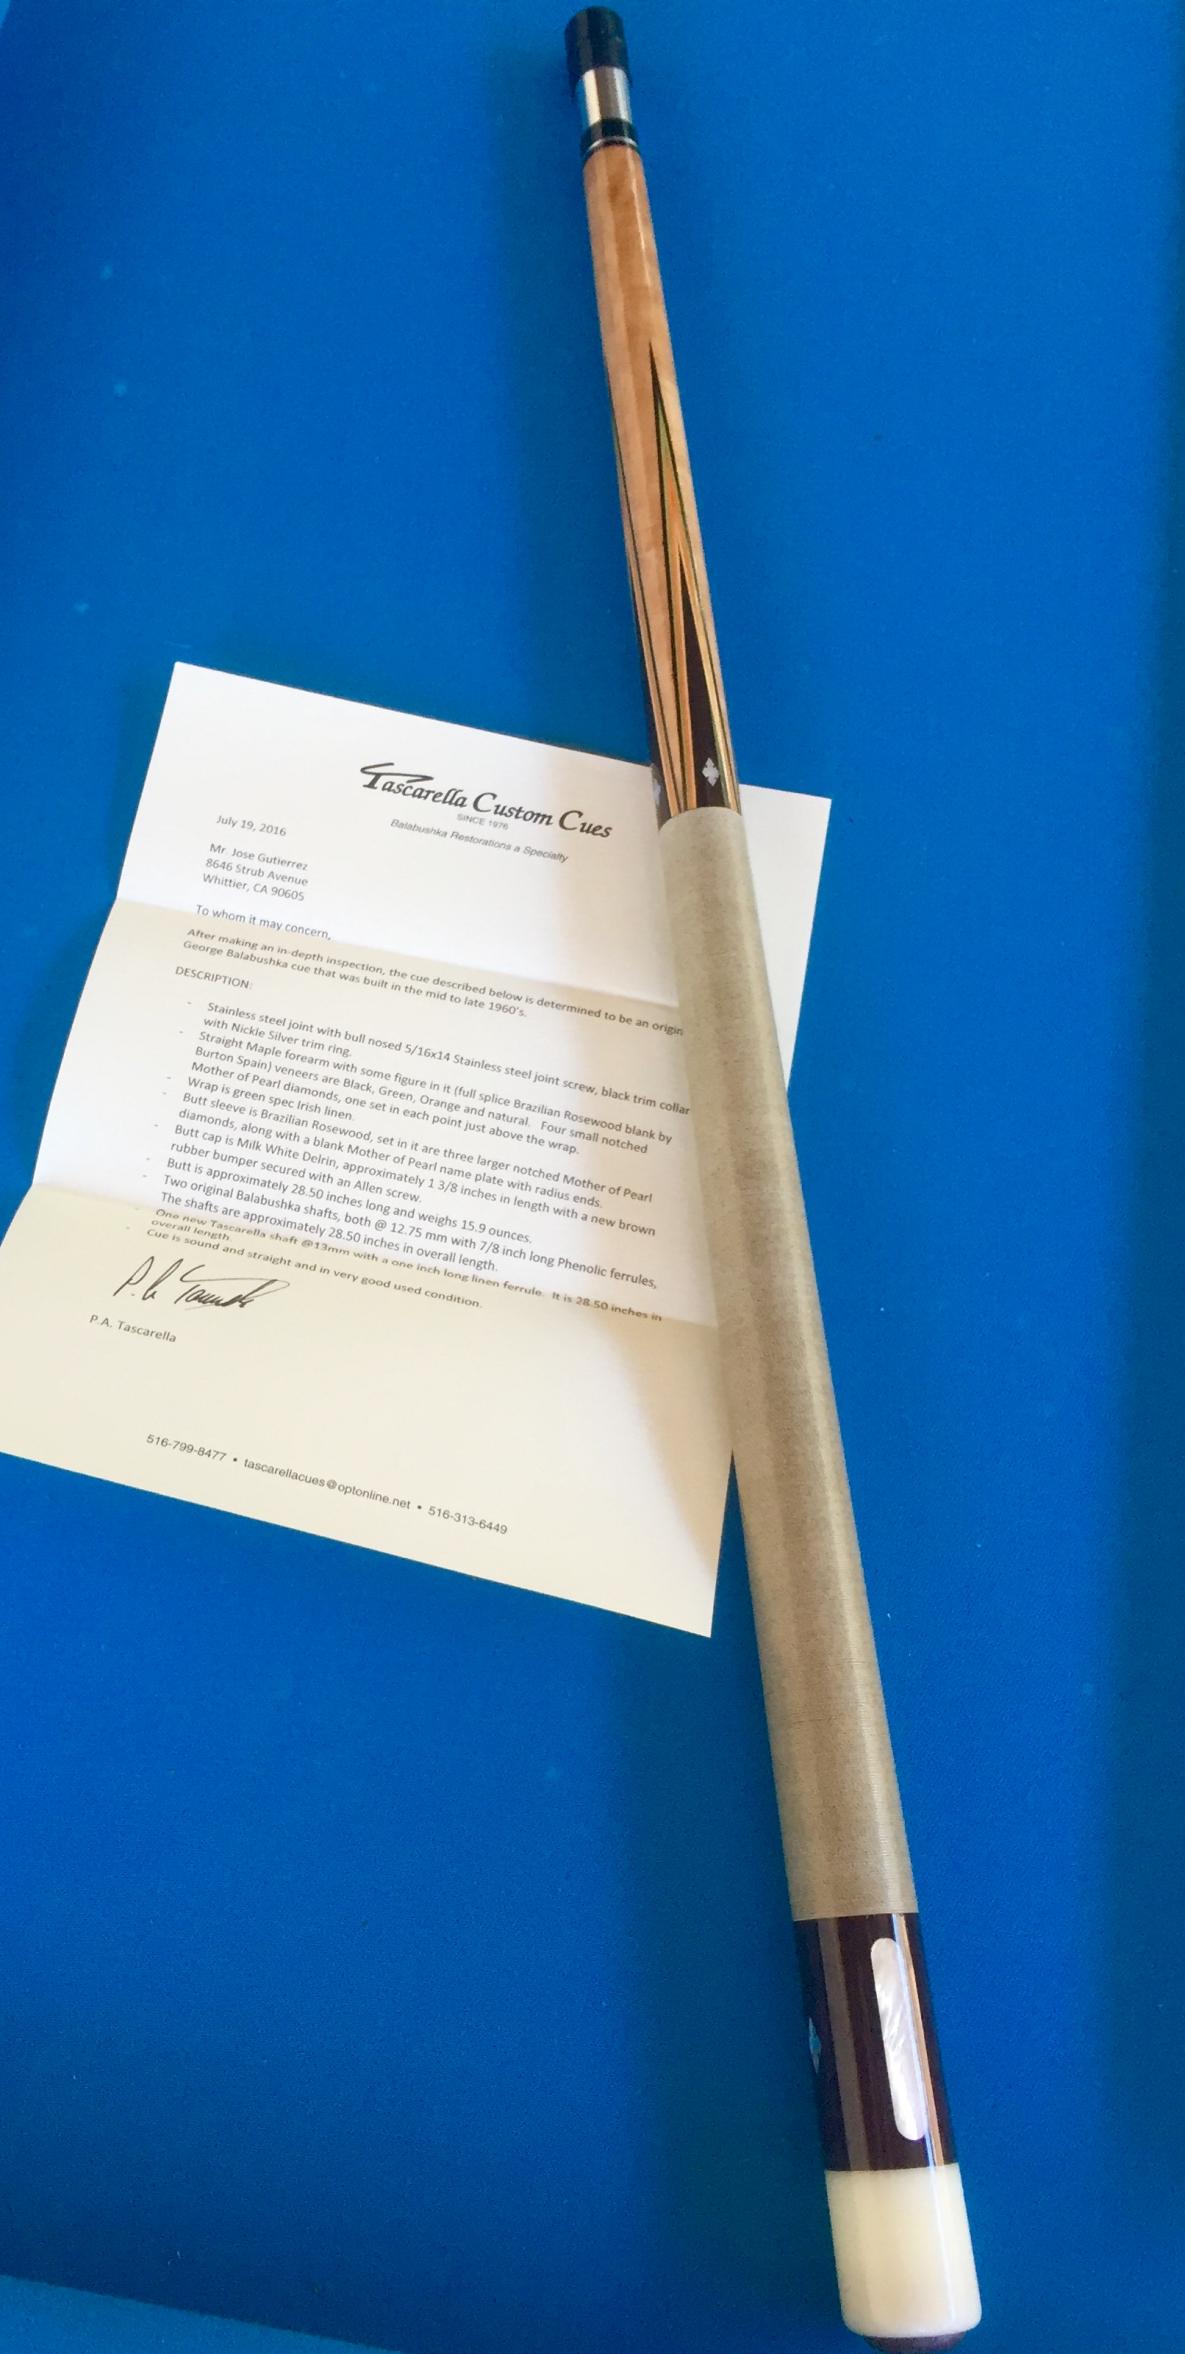 Tascarella Custom Cues
SINCE 1976
Balabushka Restorations a Specialty
July 19, 2016
Mr. Jose Gutierrez
8646 Strub Avenue
Whittier, CA 90605
To whom it may concern,
After making an in-depth inspection, the cue described below is determined to be an origin
George Balabushka cue that was built in the mid to late 1960's.
DESCRIPTION:
- Stainless steel joint with bull nosed 5/16x14 Stainless steel joint screw, black trim collar
with Nickle Silver trim ring.
- Straight Maple forearm with some figure in it (full splice Brazilian Rosewood blank by
Burton Spain) veneers are Black, Green, Orange and natural. Four small notched
Mother of Pearl diamonds, one set in each point just above the wrap.
- Wrap is green spec Irish linen.
- Butt sleeve is Brazilian Rosewood, set in it are three larger notched Mother of Pearl
diamonds, along with a blank Mother of Pearl name plate with radius ends.
- Butt cap is Milk White Delrin, approximately 1 3/8 inches in length with a new brown
rubber bumper secured with an Allen screw.
- Butt is approximately 28.50 inches long and weighs 15.9 ounces.
- Two original Balabushka shafts, both @ 12.75 mm with 7/8 inch long Phenolic ferrules,
The shafts are approximately 28.50 inches in overall length.
- One new Tascarella shaft @13mm with a one inch long linen ferrule. It is 28.50 inches in
overall length.
Cue is sound and straight and in very good used condition.
P.A. Tascarella
516-799-8477 • tascarellacues@optonline.net • 516-313-6449